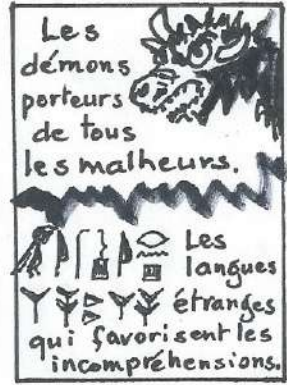 Les
démons
porteurs
de tous
les malheurs.
Les
langues
étranges
qui favorisent les
incompréhensions.